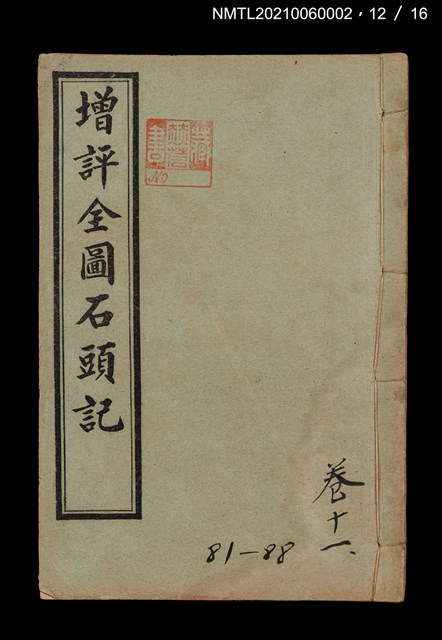 NMTL20210060002，12 / 16
增評全圖石頭記
No
卷十一、
81-88